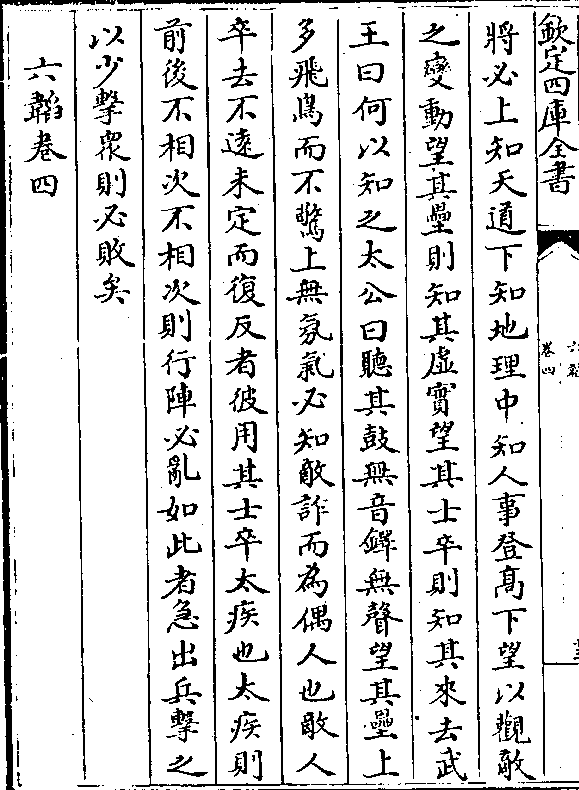 欽定四庫全書
六韜
卷四
將必上知天道下知地理中知人事登髙下望以觀敵
之變動望其壘則知其虛實望其士卒則知其來去武
王曰何以知之太公曰聽其鼓無音鐸無聲望其壘上
多飛鳥而不驚上無氛氣必知敵詐而為偶人也敵人
卒去不遠未定而復反者彼用其士卒太疾也太疾則
前後不相次不相次則行陣必亂如此者急出兵擊之
以少擊衆則必敗矣
六韜卷四